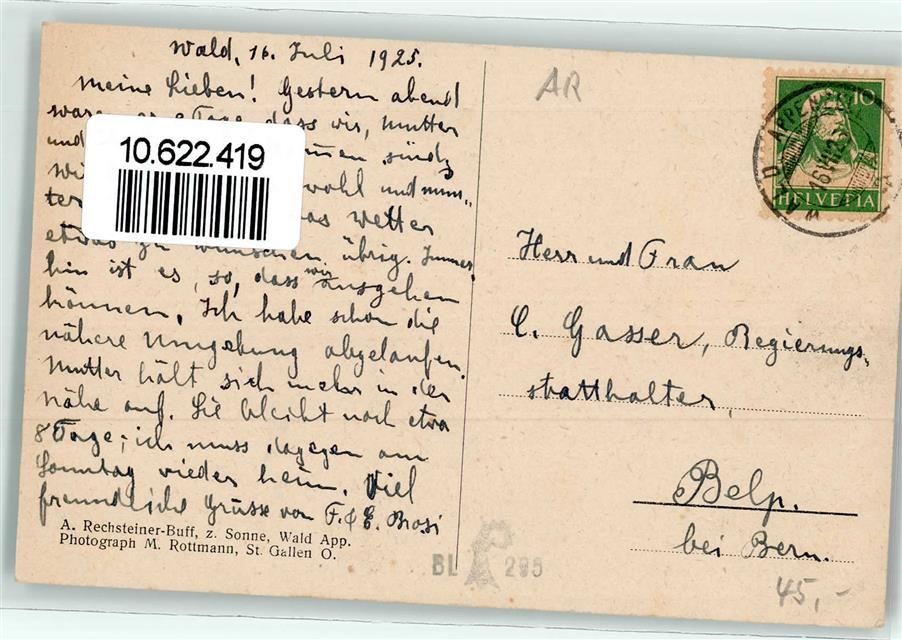 Wald, 16. Juli 1925.
Meine Lieben! Gestern abend
waren es 2 Tage, dass wir, Mutter
und sind
wi wohl und mun-
ter das Wetter
etwas zu wünschen übrig. Immer
hin ist es so, dass wir ausgehen
können. Ich habe schon die
nähere Umgebung abgelaufen.
Mutter hält sich mehr in der
Nähe auf. Sie bleibt noch etwa
8 Tage; ich muss dagegen am
Sonntag wieder heim. Viel
freundliche Grüsse von F. & E. Brosi
A. Rechsteiner-Buff, z. Sonne, Wald App.
Photograph M. Rottmann, St. Gallen O.
10.622.419
AR
10
HELVETIA
Herr und Frau
C. Gasser, Regierungs-
statthalter,
Belp.
bei Bern.
BL 295
45,-